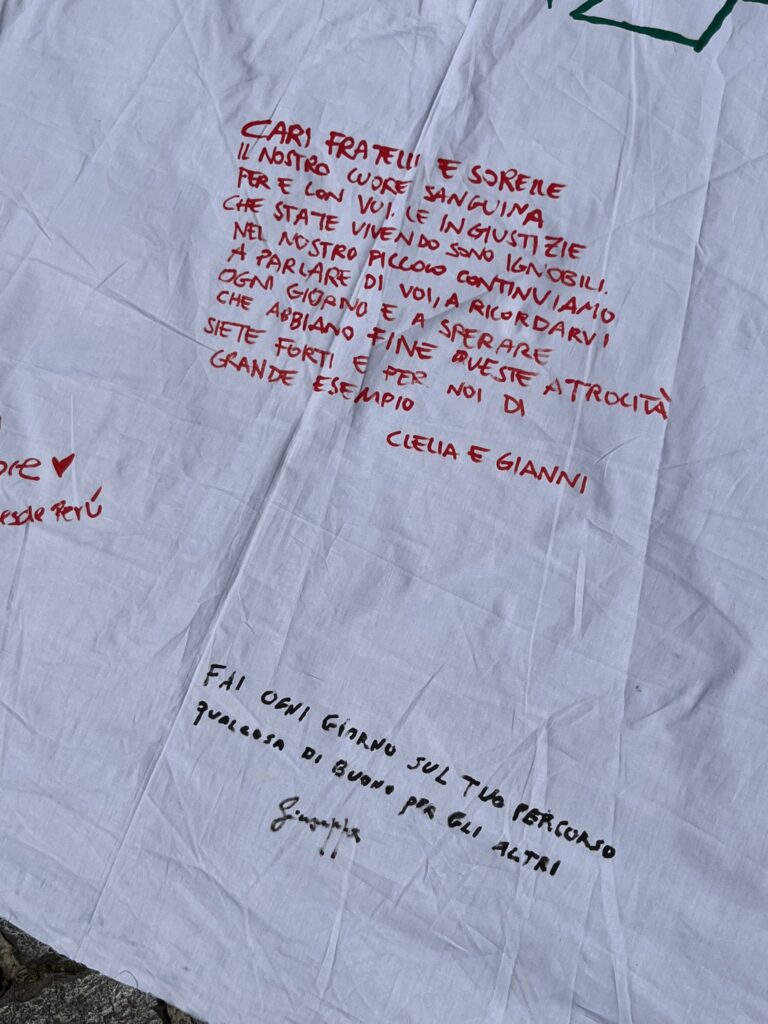 CARI FRATELLI E SORELLE
IL NOSTRO CUORE SANGUINA
PER E CON VOI. LE INGIUSTIZIE
CHE STATE VIVENDO SONO IGNOBILI.
NEL NOSTRO PICCOLO CONTINUIAMO
A PARLARE DI VOI, A RICORDARVI
OGNI GIORNO E A SPERARE
CHE ABBIANO FINE QUESTE ATROCITÀ
SIETE FORTI E PER NOI DI
GRANDE ESEMPIO
CLELIA E GIANNI
ore ♥
esde Perú
FAI OGNI GIORNO SUL TUO PERCORSO
QUALCOSA DI BUONO PER GLI ALTRI
Giuseppe